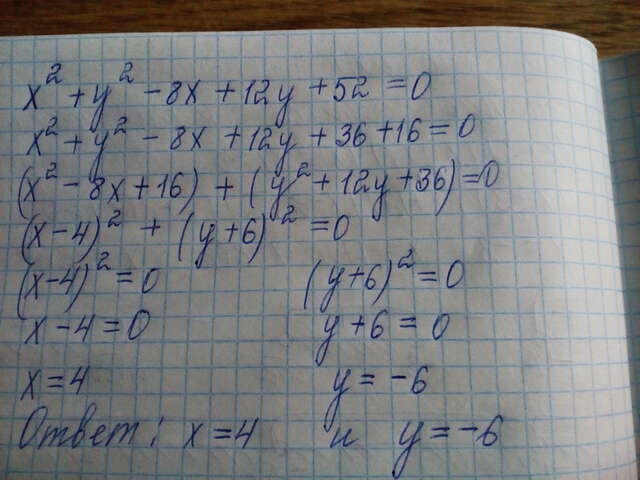 x² + y² - 8x + 12y + 52 = 0
x² + y² - 8x + 12y + 36 + 16 = 0
(x² - 8x + 16) + (y² + 12y + 36) = 0
(x - 4)² + (y + 6)² = 0
(x - 4)² = 0 (y + 6)² = 0
x - 4 = 0 y + 6 = 0
x = 4 y = -6
Ответ: x = 4 и y = -6